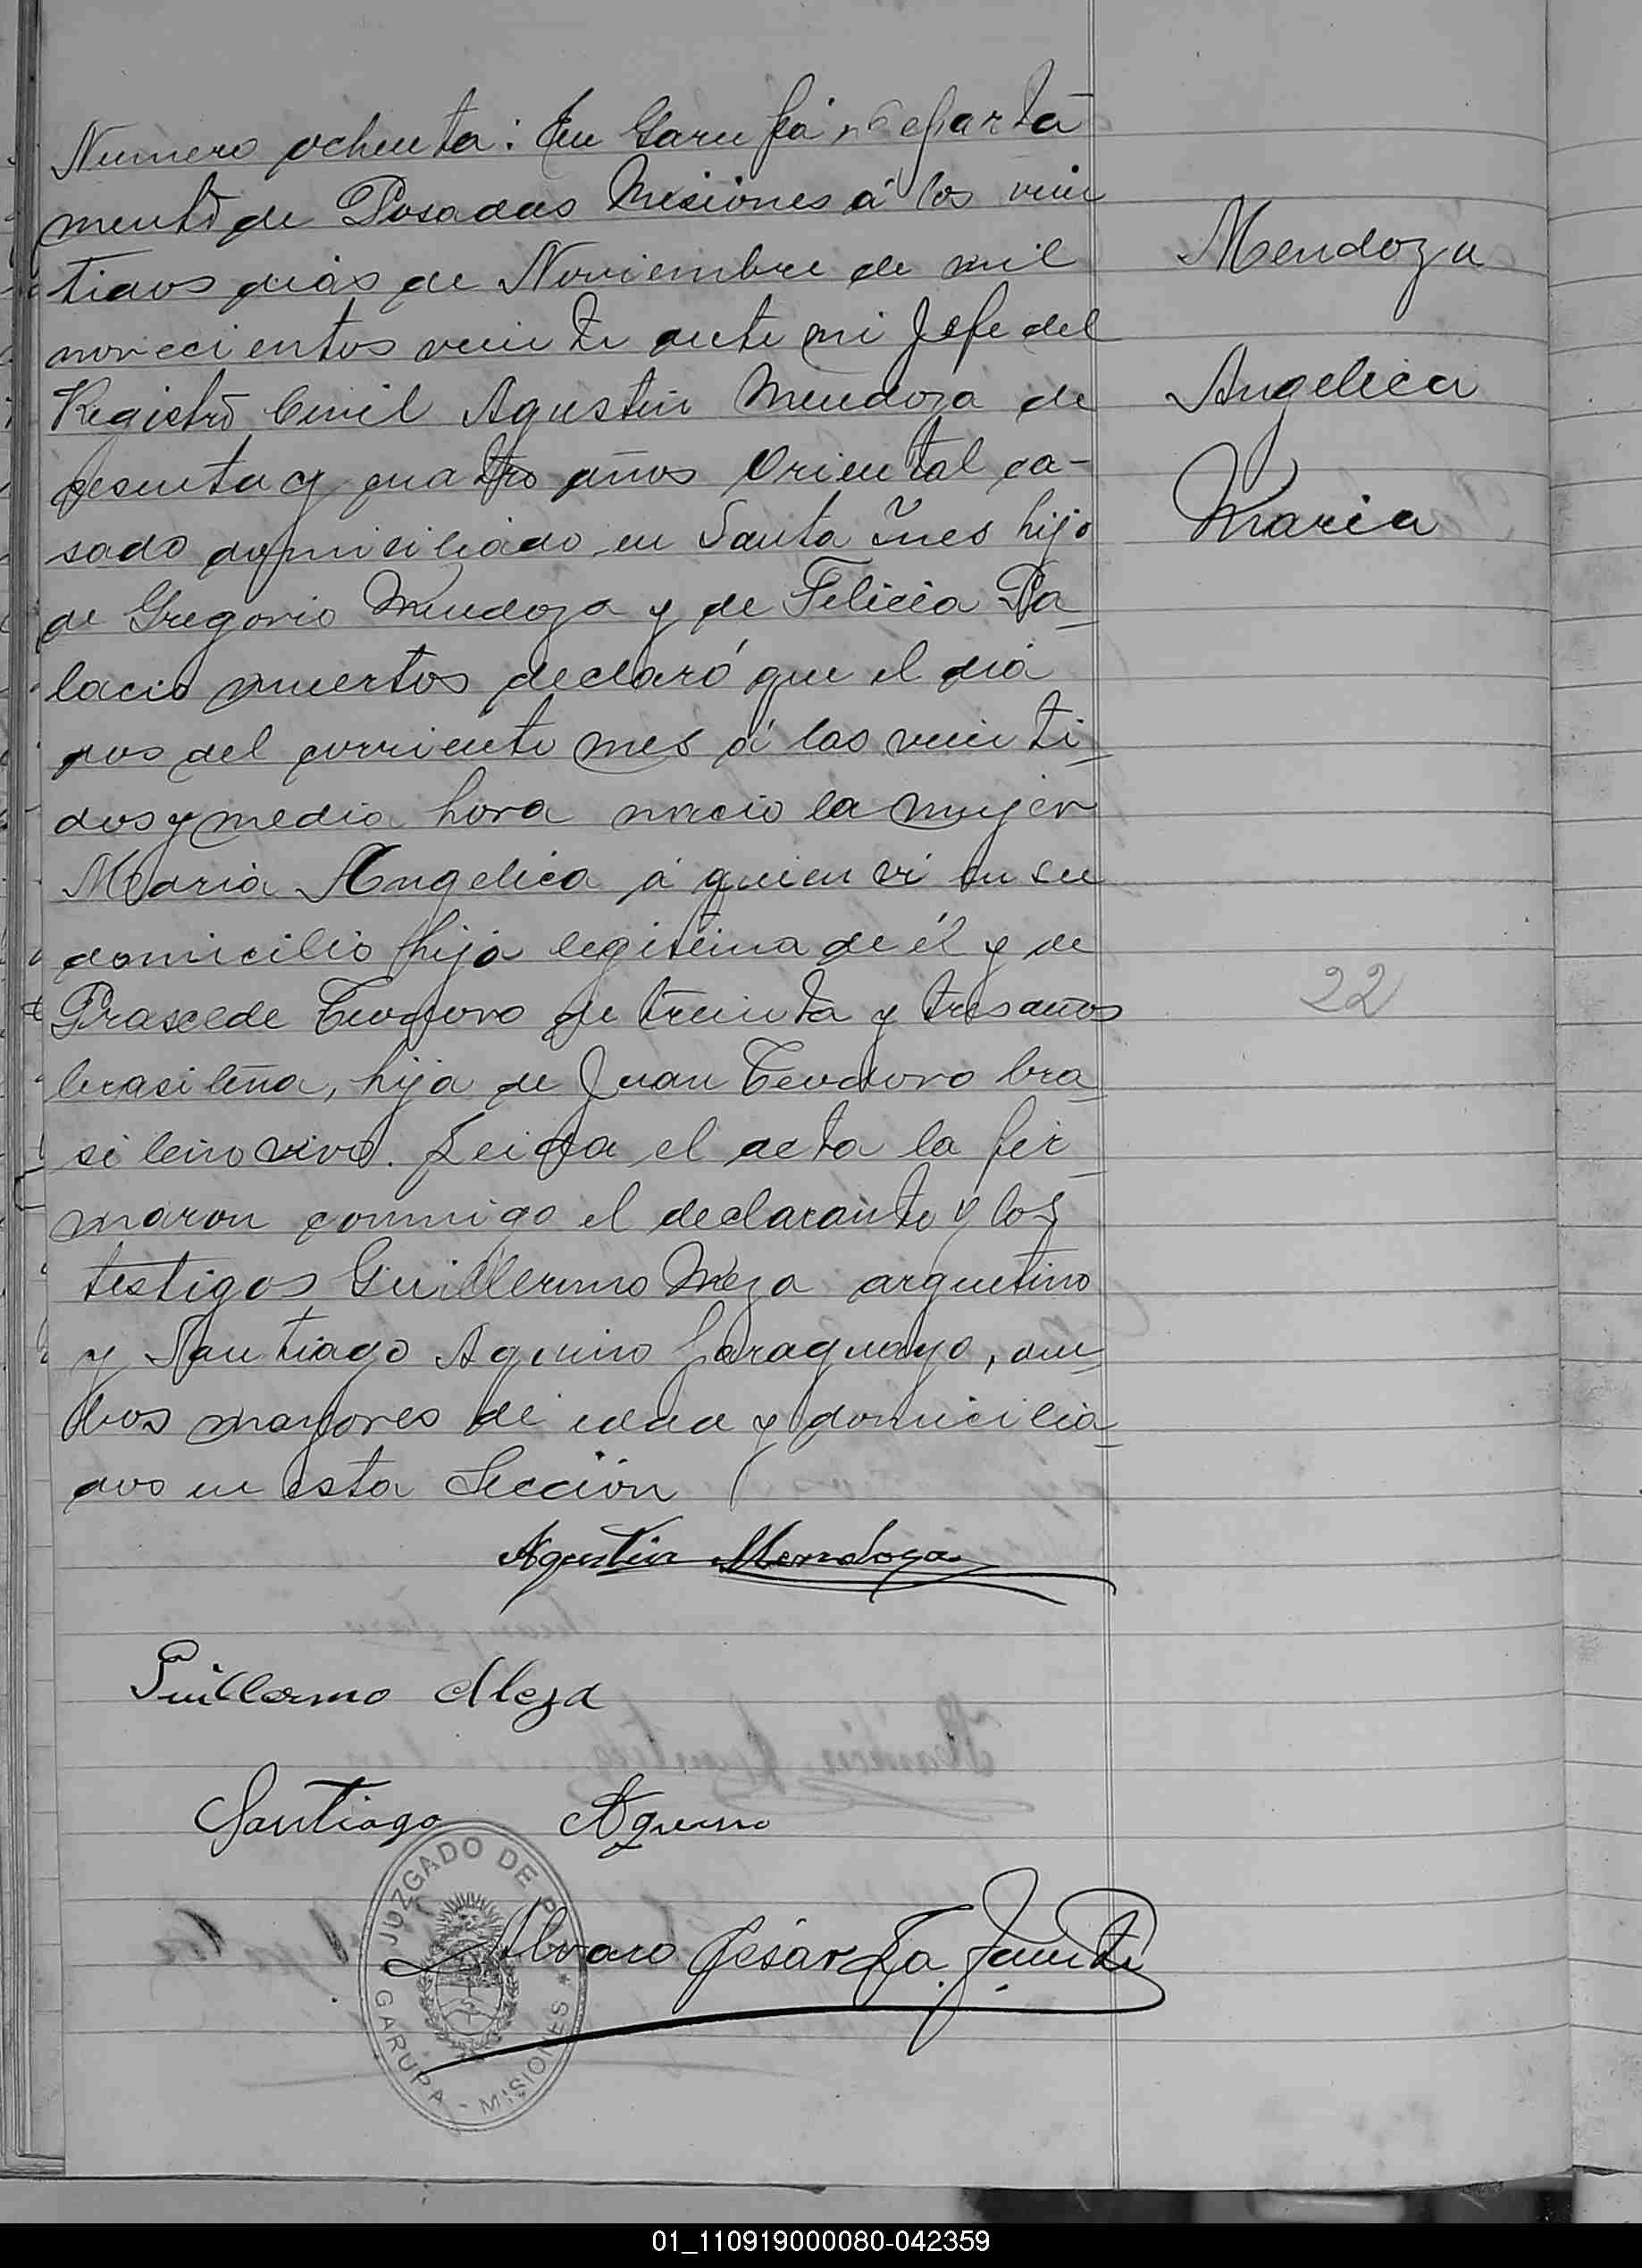 Numero ochenta: En Garupá Departa
mento de Posadas Misiones á los vein
tidos dias de Noviembre de mil
novecientos veinte ante mi Jefe del
Registro Civil Agustin Mendoza de
sesenta y cuatro años Oriental ca-
sado domiciliado en Santa Ines hijo
de Gregorio Mendoza y de Felicia Pa
lacio muertos declaró que el dia
dos del corriente mes á las veinti
dos y media hora nacio la mujer
Maria Angelica á quien vi en su
domicilio hija legitima de él y de
Prascede Teodoro de treinta y tres años
brasileña, hija de Juan Teodoro bra
sileño vivo. Leida el acta la fir
maron conmigo el declarante y los
testigos Guillermo Meza argentino
y Santiago Aquino paraguayo, am
bos mayores de edad y domicilia
dos en esta Sección
Mendoza
Angelica
Maria
22
Agustin Mendoza
Guillermo Meza
Santiago Aquino
Alvaro Césár La
JUZGADO DE PAZ
GARUPA - MISIONES *
01_110919000080-042359